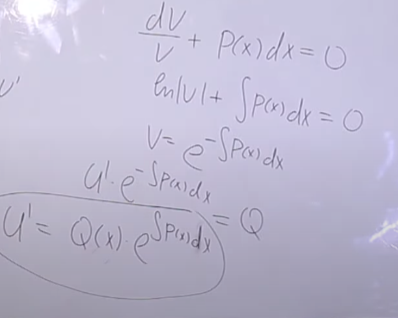 dV/V + P(x)dx = 0
ln|V| + ∫P(x)dx = 0
V = e^{-∫P(x)dx}
U' · e^{-∫P(x)dx} = Q
U' = Q(x) · e^{∫P(x)dx}